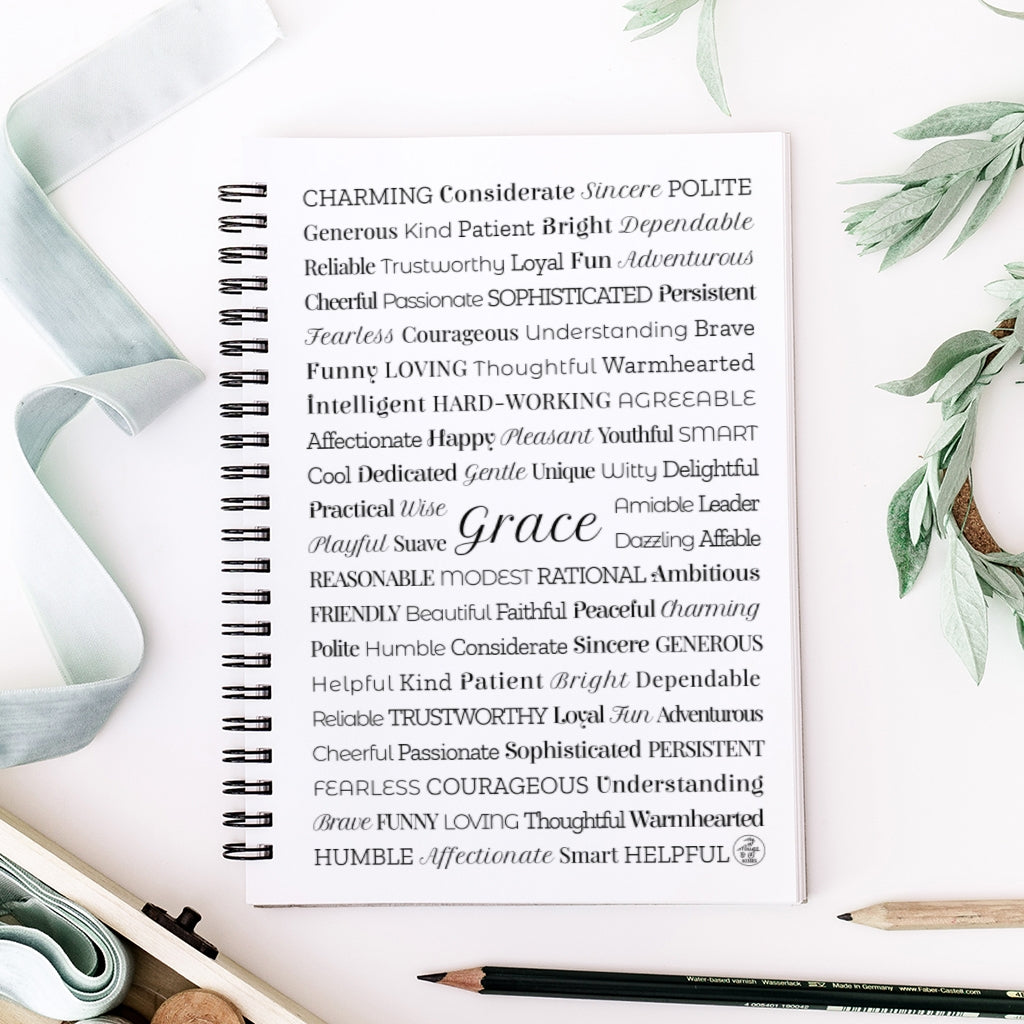 CHARMING Considerate Sincere POLITE
Generous Kind Patient Bright Dependable
Reliable Trustworthy Loyal Fun Adventurous
Cheerful Passionate SOPHISTICATED Persistent
Fearless Courageous Understanding Brave
Funny LOVING Thoughtful Warmhearted
Intelligent HARD-WORKING AGREEABLE
Affectionate Happy Pleasant Youthful SMART
Cool Dedicated Gentle Unique Witty Delightful
Practical Wise
Playful Suave
Grace
Amiable Leader
Dazzling Affable
REASONABLE MODEST RATIONAL Ambitious
FRIENDLY Beautiful Faithful Peaceful Charming
Polite Humble Considerate Sincere GENEROUS
Helpful Kind Patient Bright Dependable
Reliable TRUSTWORTHY Loyal Fun Adventurous
Cheerful Passionate Sophisticated PERSISTENT
FEARLESS COURAGEOUS Understanding
Brave FUNNY LOVING Thoughtful Warmhearted
HUMBLE Affectionate Smart HELPFUL
Water-based varnish Wasserlack SV Made in Germany www.Faber-Castell.com
4 005401 190042